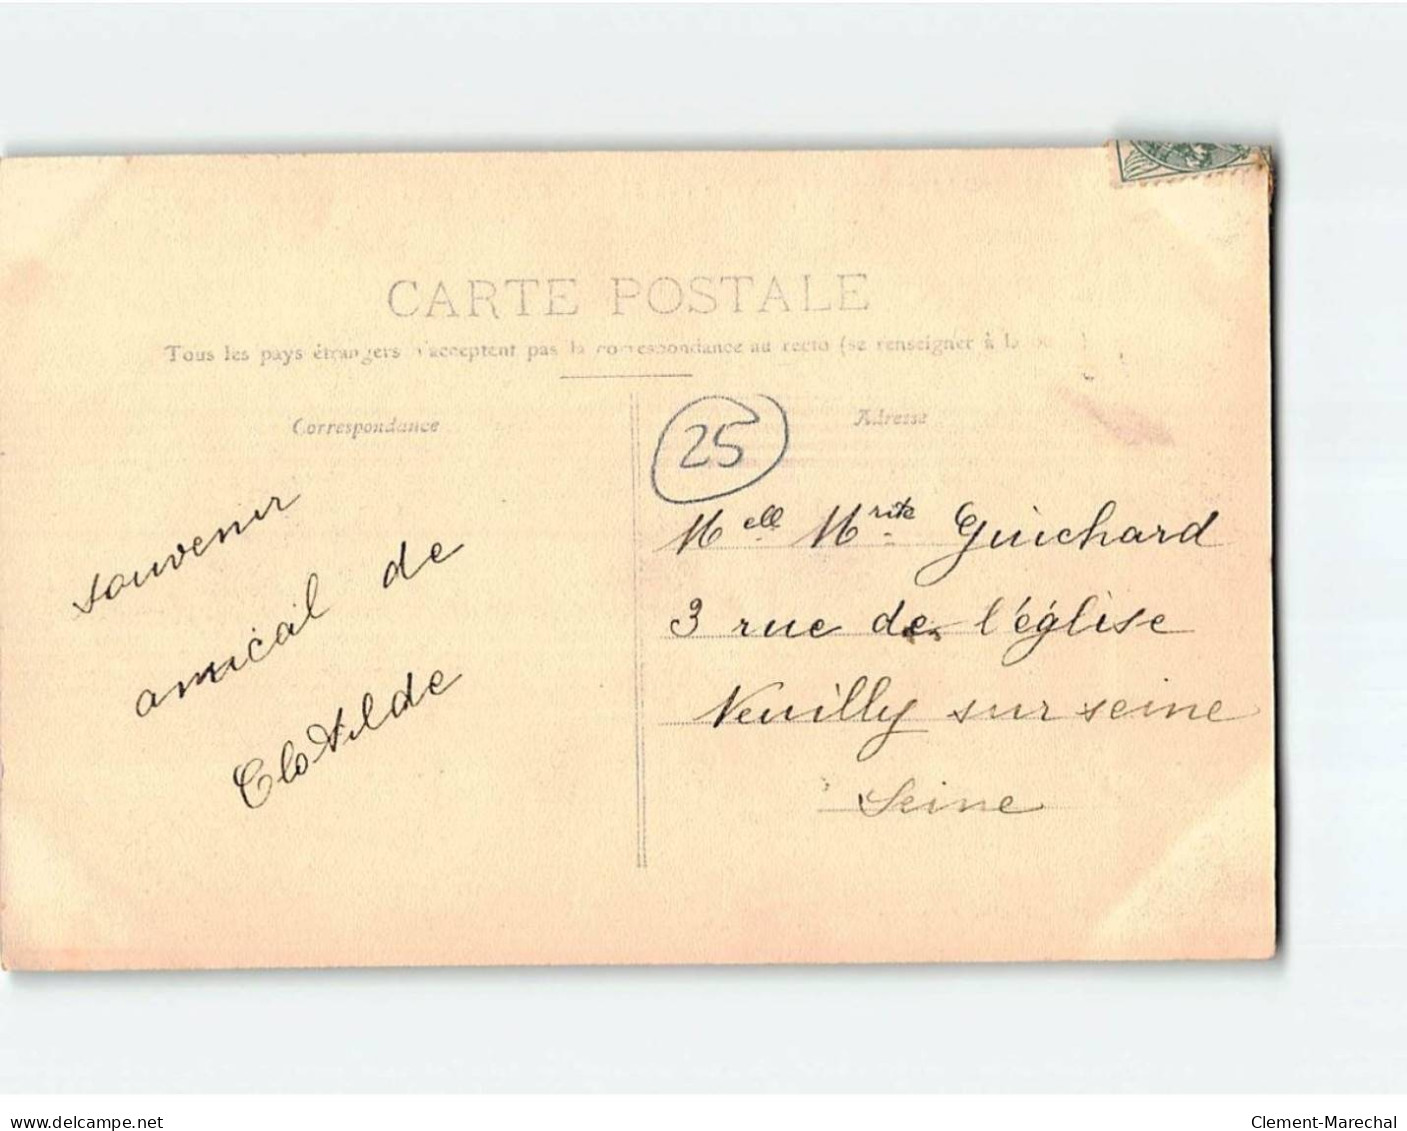 CARTE POSTALE
Tous les pays étrangers n'acceptent pas la correspondance au recto (se renseigner à la
Correspondance
Adresse
25
souvenir
amical de
Clotilde
Melle Mrite Guichard
3 rue de l'église
Neuilly sur seine
Seine
www.delcampe.net
Clement-Marechal